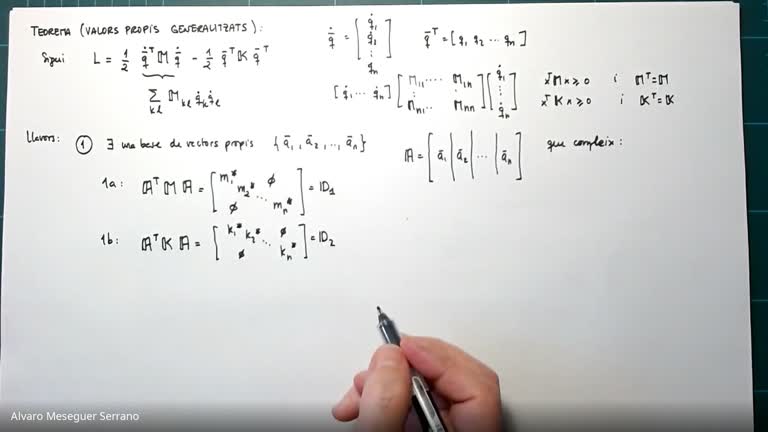 TEOREMA (VALORS PROPIS GENERALITZATS):
Sigui L = 1/2 q̇̄ᵀ 𝕄 q̇̄ - 1/2 q̄ᵀ 𝕂 q̄ᵀ
∑ₖₗ 𝕄ₖₗ q̇ₖ q̇ₗ
q̇̄ = [q̇₁ q̇₂ ⋮ qₙ] q̄ᵀ = [q₁ q₂ ⋯ qₙ]
[q̇₁ ⋯ q̇ₙ] [M₁₁ ⋯ M₁ₙ ⋮ ⋮ Mₙ₁ ⋯ Mₙₙ] [q̇₁ ⋮ q̇ₙ]
xᵀ𝕄x ≥ 0 i 𝕄ᵀ=𝕄
xᵀ𝕂x ≥ 0 i 𝕂ᵀ=𝕂
Llavors: ① ∃ una base de vectors propis {ā₁, ā₂, .., āₙ} 𝔸 = [ā₁ | ā₂ | ⋯ | āₙ] que compleix:
1a: 𝔸ᵀ 𝕄 𝔸 = [m₁* m₂* ⋱ mₙ* ∅ ∅] = 𝔻₁
1b: 𝔸ᵀ 𝕂 𝔸 = [k₁* k₂* ⋱ kₙ* ∅ ∅] = 𝔻₂
Alvaro Meseguer Serrano